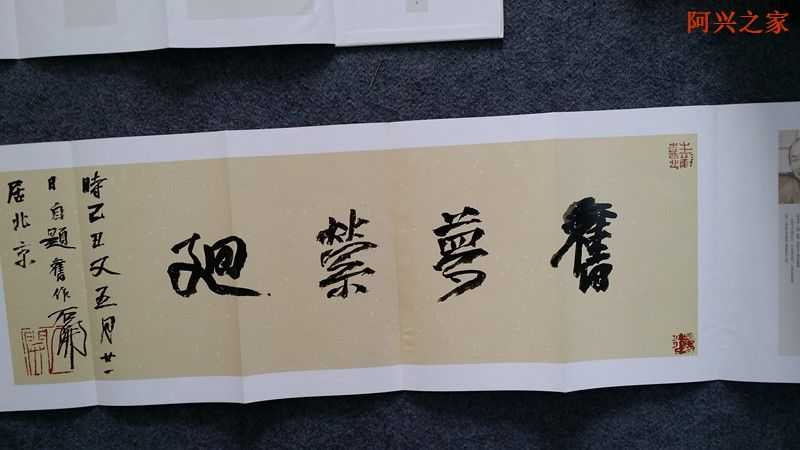 阿兴之家
舊夢縈廻
時己丑又五月廿一
日自題舊作石開
居北京